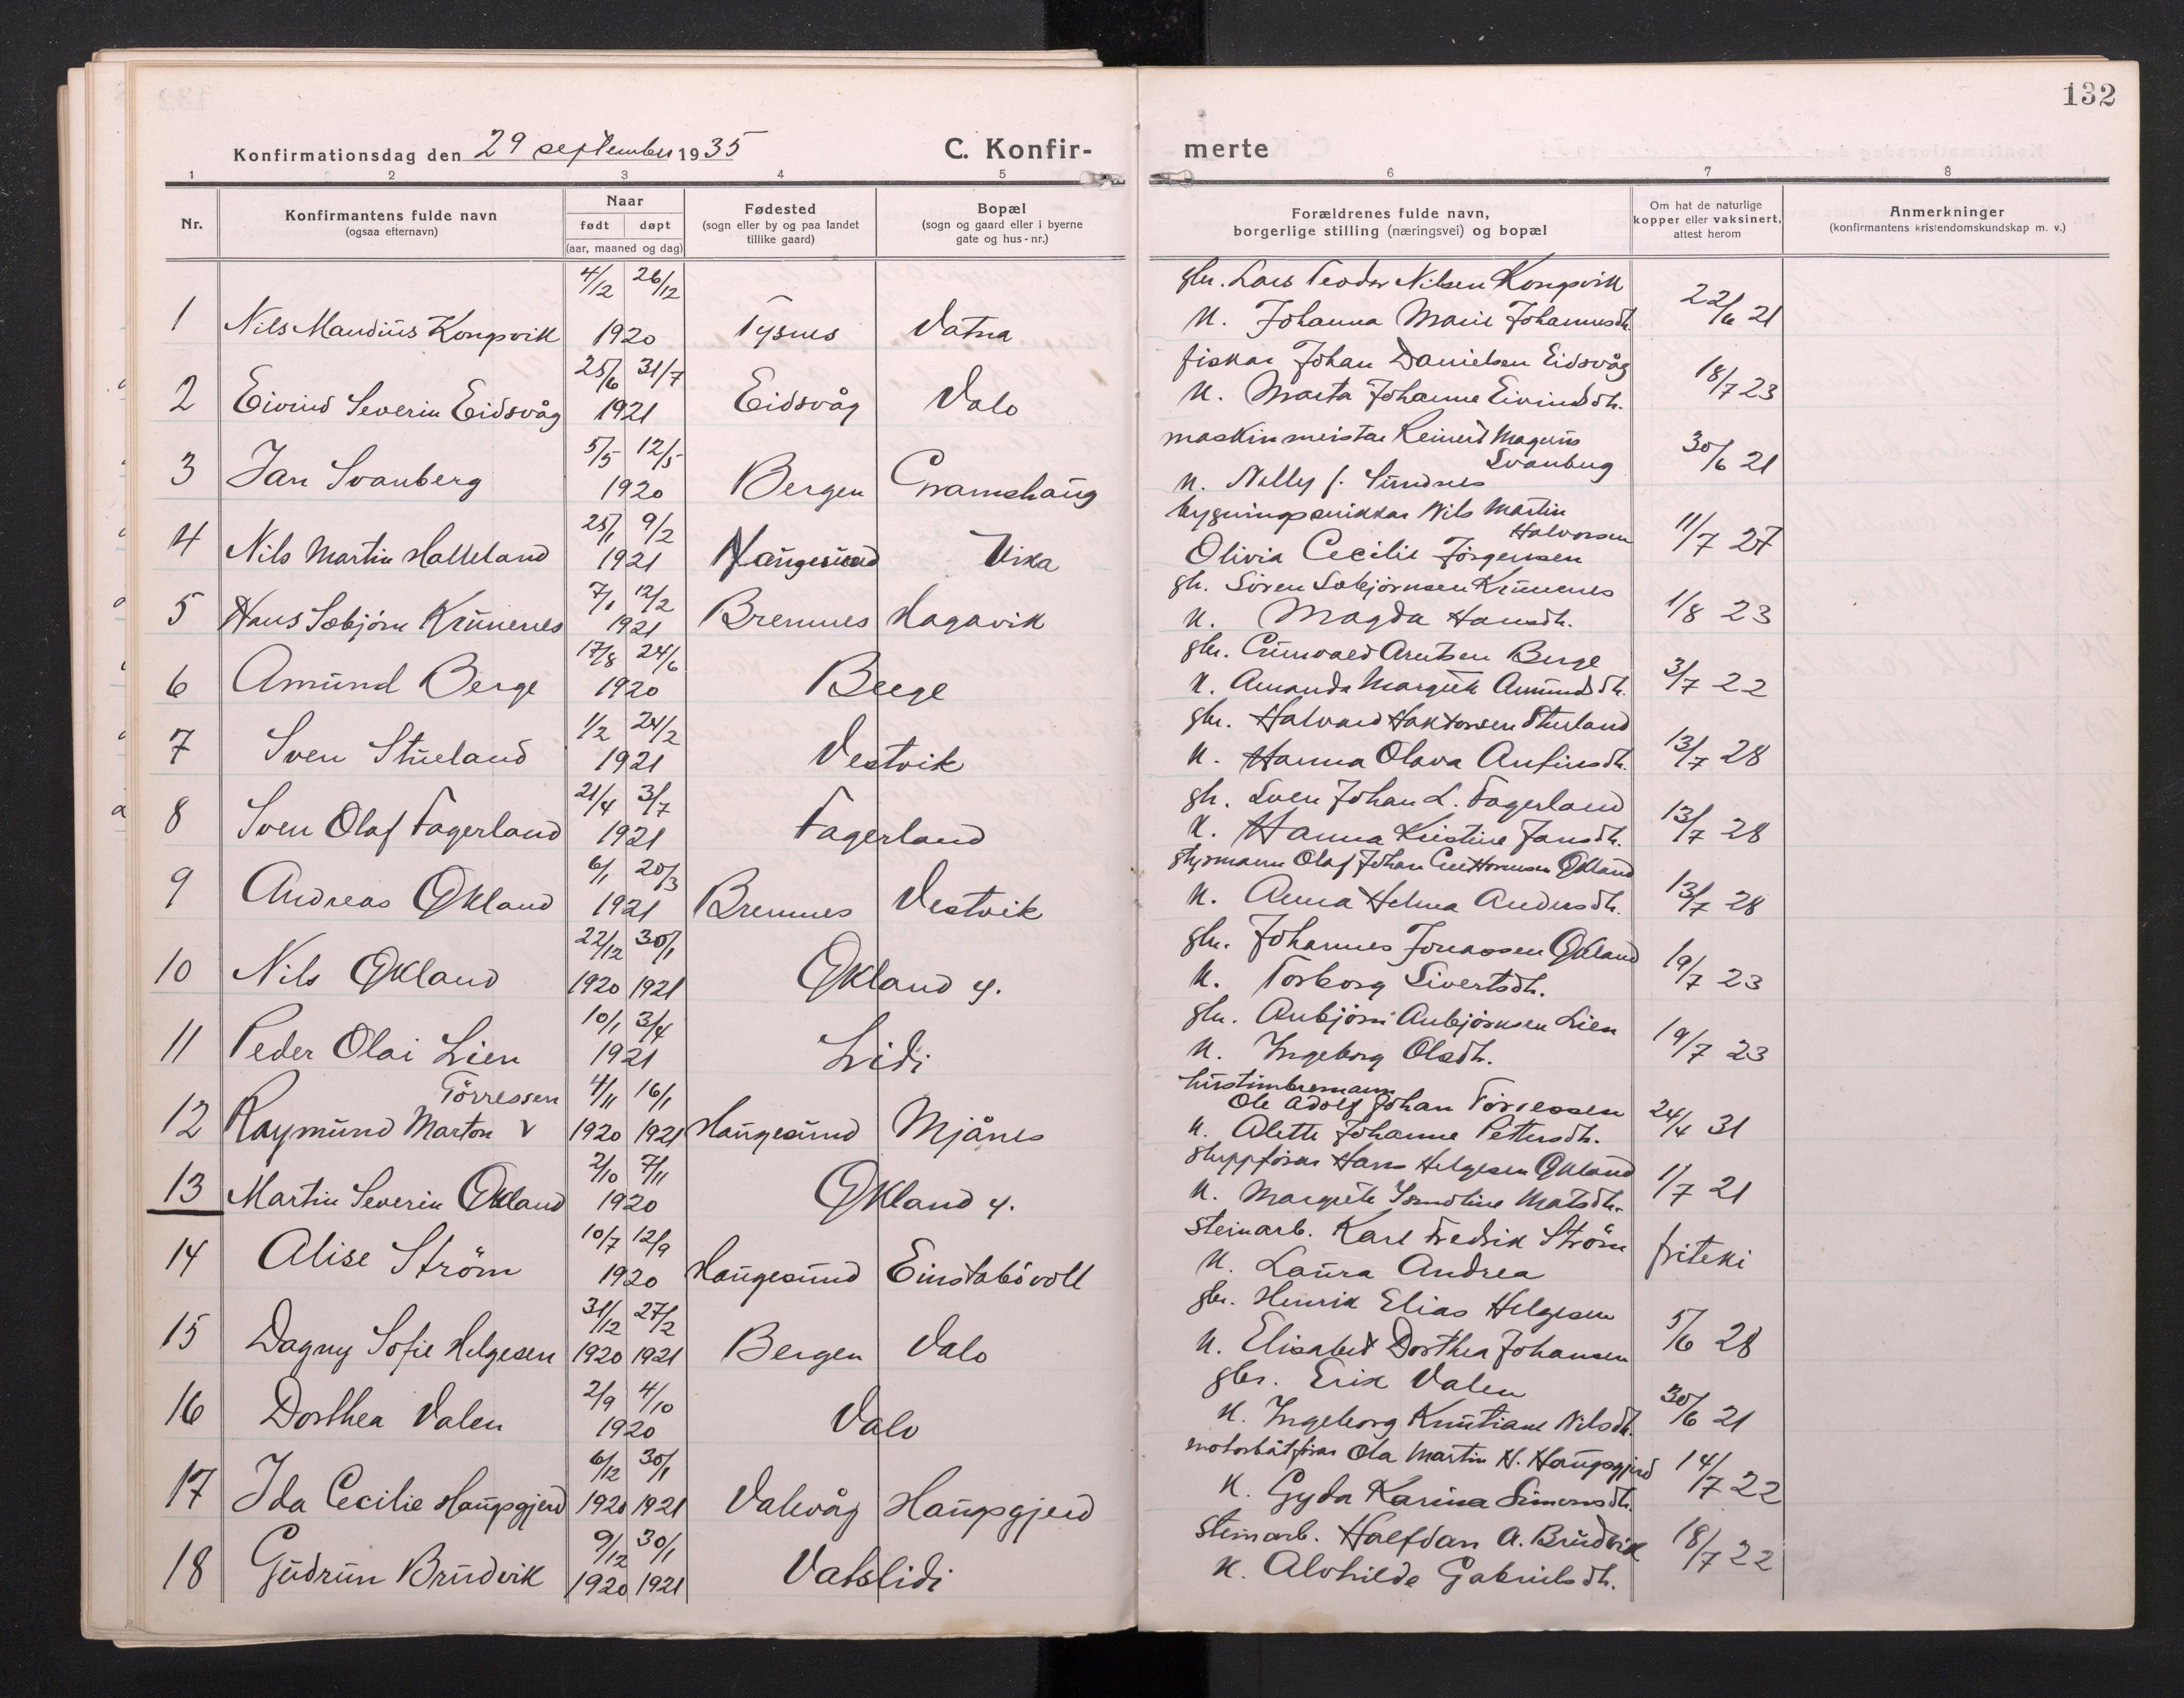 132
Konfirmationsdag den 29 september 1935
C. Konfir-
merte
1 2 3 4 5 6 7 8
Nr.
Konfirmantens fulde navn
(ogsaa efternavn)
Naar
født døpt
(aar, maaned og dag)
Fødested
(sogn eller by og paa landet
tillike gaard)
Bopæl
(sogn og gaard eller i byerne
gate og hus-nr.)
Forældrenes fulde navn,
borgerlige stilling (næringsvei) og bopæl
Om hat de naturlige
kopper eller vaksinert,
attest herom
Anmerkninger
(konfirmantens kristendomskundskap m. v.)
4/12 26/12 gbr. Lars Teodor Nilsen Kongsvik
1 Nils Maudius Kongsvik 1920 Tysnes Vatna K. Johanna Marie Johannesdt. 22/6 21
25/6 31/7 fiskar Johan Danielsen Eidsvåg
2 Eivind Severin Eidsvåg 1921 Eidsvåg Valo K. Marta Johanne Eivindsdt. 18/7 23
5/5 12/5 maskinmeistar Reinert Magnus
Svanberg
3 Jan Svanberg 1920 Bergen K. Nelly f. Sundnes 30/6 21
25/1 9/2 bygningssnikkar Nils Martin
Halvorsen
4 Nils Martin Halleland 1921 Haugesund Vika Olivia Cecilie Jörgensen 11/7 27
7/1 12/2 gbr. Sören Sæbjörnsen Krunenes
5 Hans Sæbjörn Krunenes 1921 Bremnes Hagavik K. Magda Hansdt. 1/8 23
17/8 24/6 gbr. Gunvald Arntsen Berge
6 Amund Berge 1920 Berge K. Amanda Margrete Amundsdt. 3/7 22
1/2 24/2 gbr. Halvard Haktorsen Stueland
7 Sven Stueland 1921 Vestvik K. Hanna Olava Anfinsdt. 13/7 28
21/4 3/7 gbr. Sven Johan L. Fagerland
8 Sven Olaf Fagerland 1921 Fagerland K. Hanna Kristine Jansdt. 13/7 28
6/1 20/3 styrmann Olaf Johan Guttormsen Økland
9 Andreas Økland 1921 Bremnes Vestvik K. Anna Helma Andersdt. 13/7 28
22/12 30/1 gbr. Johannes Jonassen Økland
10 Nils Økland 1920 1921 Økland y. K. Torborg Sivertsdt. 19/7 23
10/1 3/4 gbr. Aubjörn Aubjörnsen Lien
11 Peder Olai Lien 1921 Lidi K. Ingeborg Olsdt. 19/7 23
Törressen 4/11 16/1 hustimbremann
Ole Adolf Johan Törressen
12 Raymund Marton v 1920 1921 Haugesund Mjånes K. Alette Johanne Pettersdt. 24/4 31
2/10 7/11 skippförar Hans Helgesen Økland
13 Martin Severin Økland 1920 Økland y. K. Margrete Matsdt. 1/7 21
10/7 12/9 steinarb. Karl Fredrik Ström
14 Alise Ström 1920 Haugesund Einstabövoll K. Laura Andrea friteki
31/12 27/2 gbr. Henrik Elias Helgesen
15 Dagny Sofie Helgesen 1920 1921 Bergen Valo K. Elisabet Dorthea Johansen 5/6 28
2/9 4/10 gbr. Erik Valen
16 Dorthea Valen 1920 Valo K. Ingeborg Knutiane Nilsdt. 30/6 21
6/12 30/1 motorbåtförar Ola Martin H. Haugsgjerd
17 Ida Cecilie Haugsgjerd 1920 1921 Valevåg Haugsgjerd K. Gyda Karina Simonsdt. 14/7 22
9/12 30/1 steinarb. Halfdan A. Brudvik
18 Gudrun Brudvik 1920 1921 Vatslidi K. Alvhilde Gabrielsdt. 18/7 22